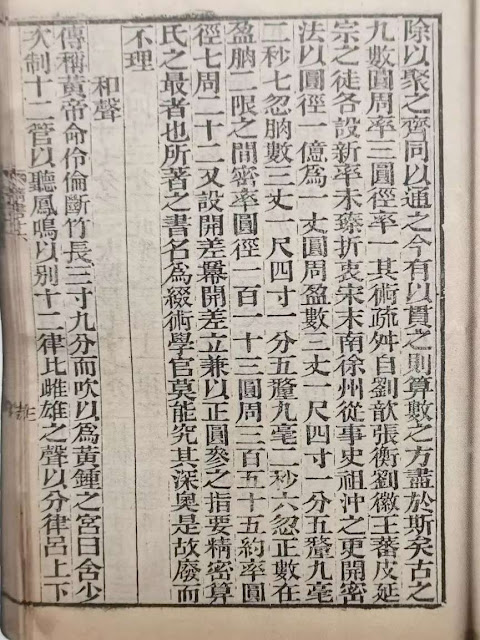 除以聚之齊同以通之今有以貫之則算數之方盡於斯矣古之
九數圓周率三圓徑率一其術疏舛自劉歆張衡劉徽王蕃皮延
宗之徒各設新率未臻折衷宋末南徐州從事史祖沖之更開密
法以圓徑一億爲一丈圓周盈數三丈一尺四寸一分五釐九毫
二秒七忽朒數三丈一尺四寸一分五釐九毫二秒六忽正數在
盈朒二限之間密率圓徑一百一十三圓周三百五十五約率圓
徑七周二十二又設開差冪開差立兼以正圓參之指要精密算
氏之最者也所著之書名爲綴術學官莫能究其深奧是故廢而
不理
和聲
傳稱黃帝命伶倫斷竹長三寸九分而吹以爲黃鍾之宮曰含少
次制十二管以聽鳳鳴以別十二律比雌雄之聲以分律呂上下